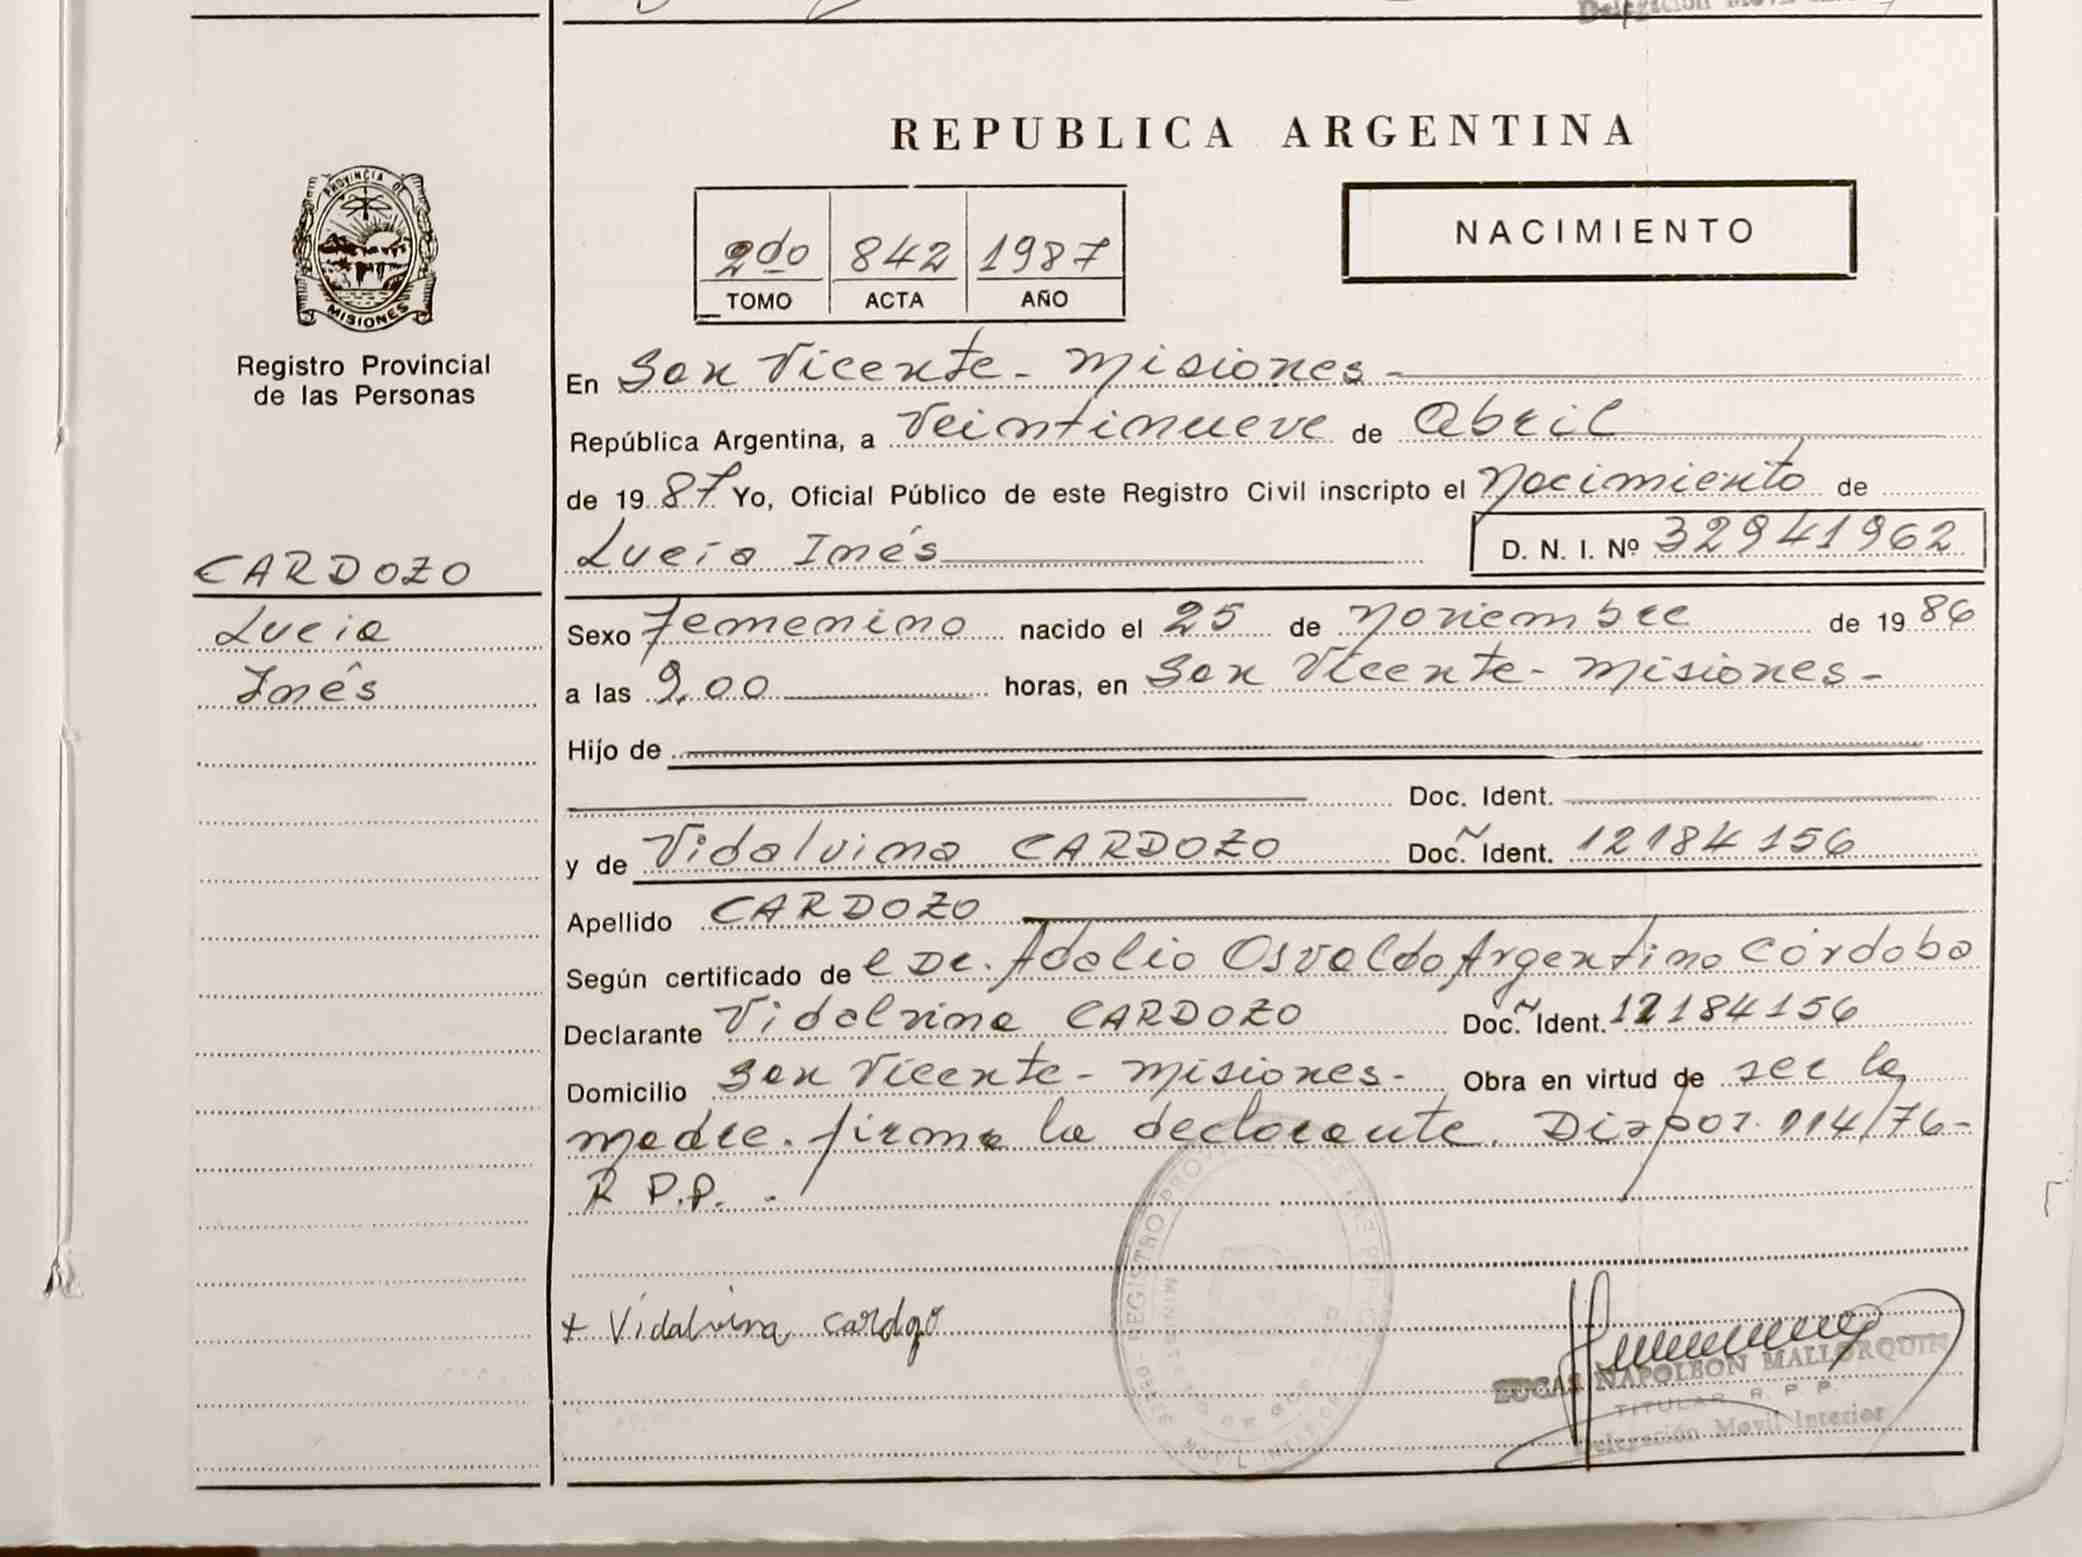 Delegación Movil
REPUBLICA ARGENTINA
PROVINCIA DE
MISIONES
2do 842 1987
TOMO ACTA AÑO
NACIMIENTO
Registro Provincial
de las Personas
En San Vicente - Misiones -
República Argentina, a Veintinueve de Abril
de 19 87 Yo, Oficial Público de este Registro Civil inscripto el Nacimiento de
Lucía Inés D. N. I. Nº 32941962
CARDOZO
Lucía
Inés
Sexo Femenino nacido el 25 de Noviembre de 19 86
a las 9,00 horas, en San Vicente - Misiones -
Hijo de
Doc. Ident.
y de Vidalvina CARDOZO Doc. Ident. 12184156
Apellido CARDOZO
Según certificado de l Dr. Adalio Osvaldo Argentino Córdoba
Declarante Vidalvina CARDOZO Doc. Ident. 12184156
Domicilio San Vicente - Misiones - Obra en virtud de ser la
madre. firma la declarante. Dispos. 114/76-
R P.P. -
+ Vidalvina cardozo
REGISTRO
EDGAR NAPOLEON MALLORQUIN
TITULAR R. P. P.
Delegación Movil Interior